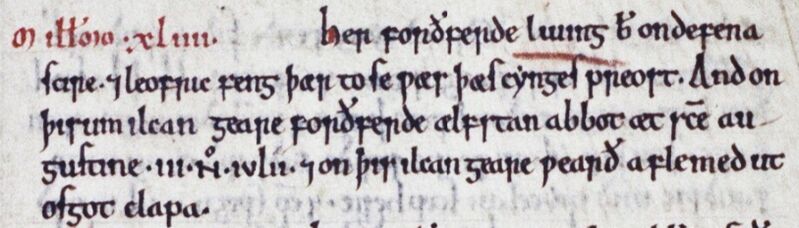 Millo̅mo .xliiii. her forðferde liuing b̅ on defena
scire. ⁊ leofric feng þær to se ƿæs þæs cynges preost. And on
þisum ilcan geare forðferde ælfstan abbot æt sc̅e au
gustine .iii. nō. iulii. ⁊ on þis ilcan geare ƿearð aflemed ut
osgot clapa.